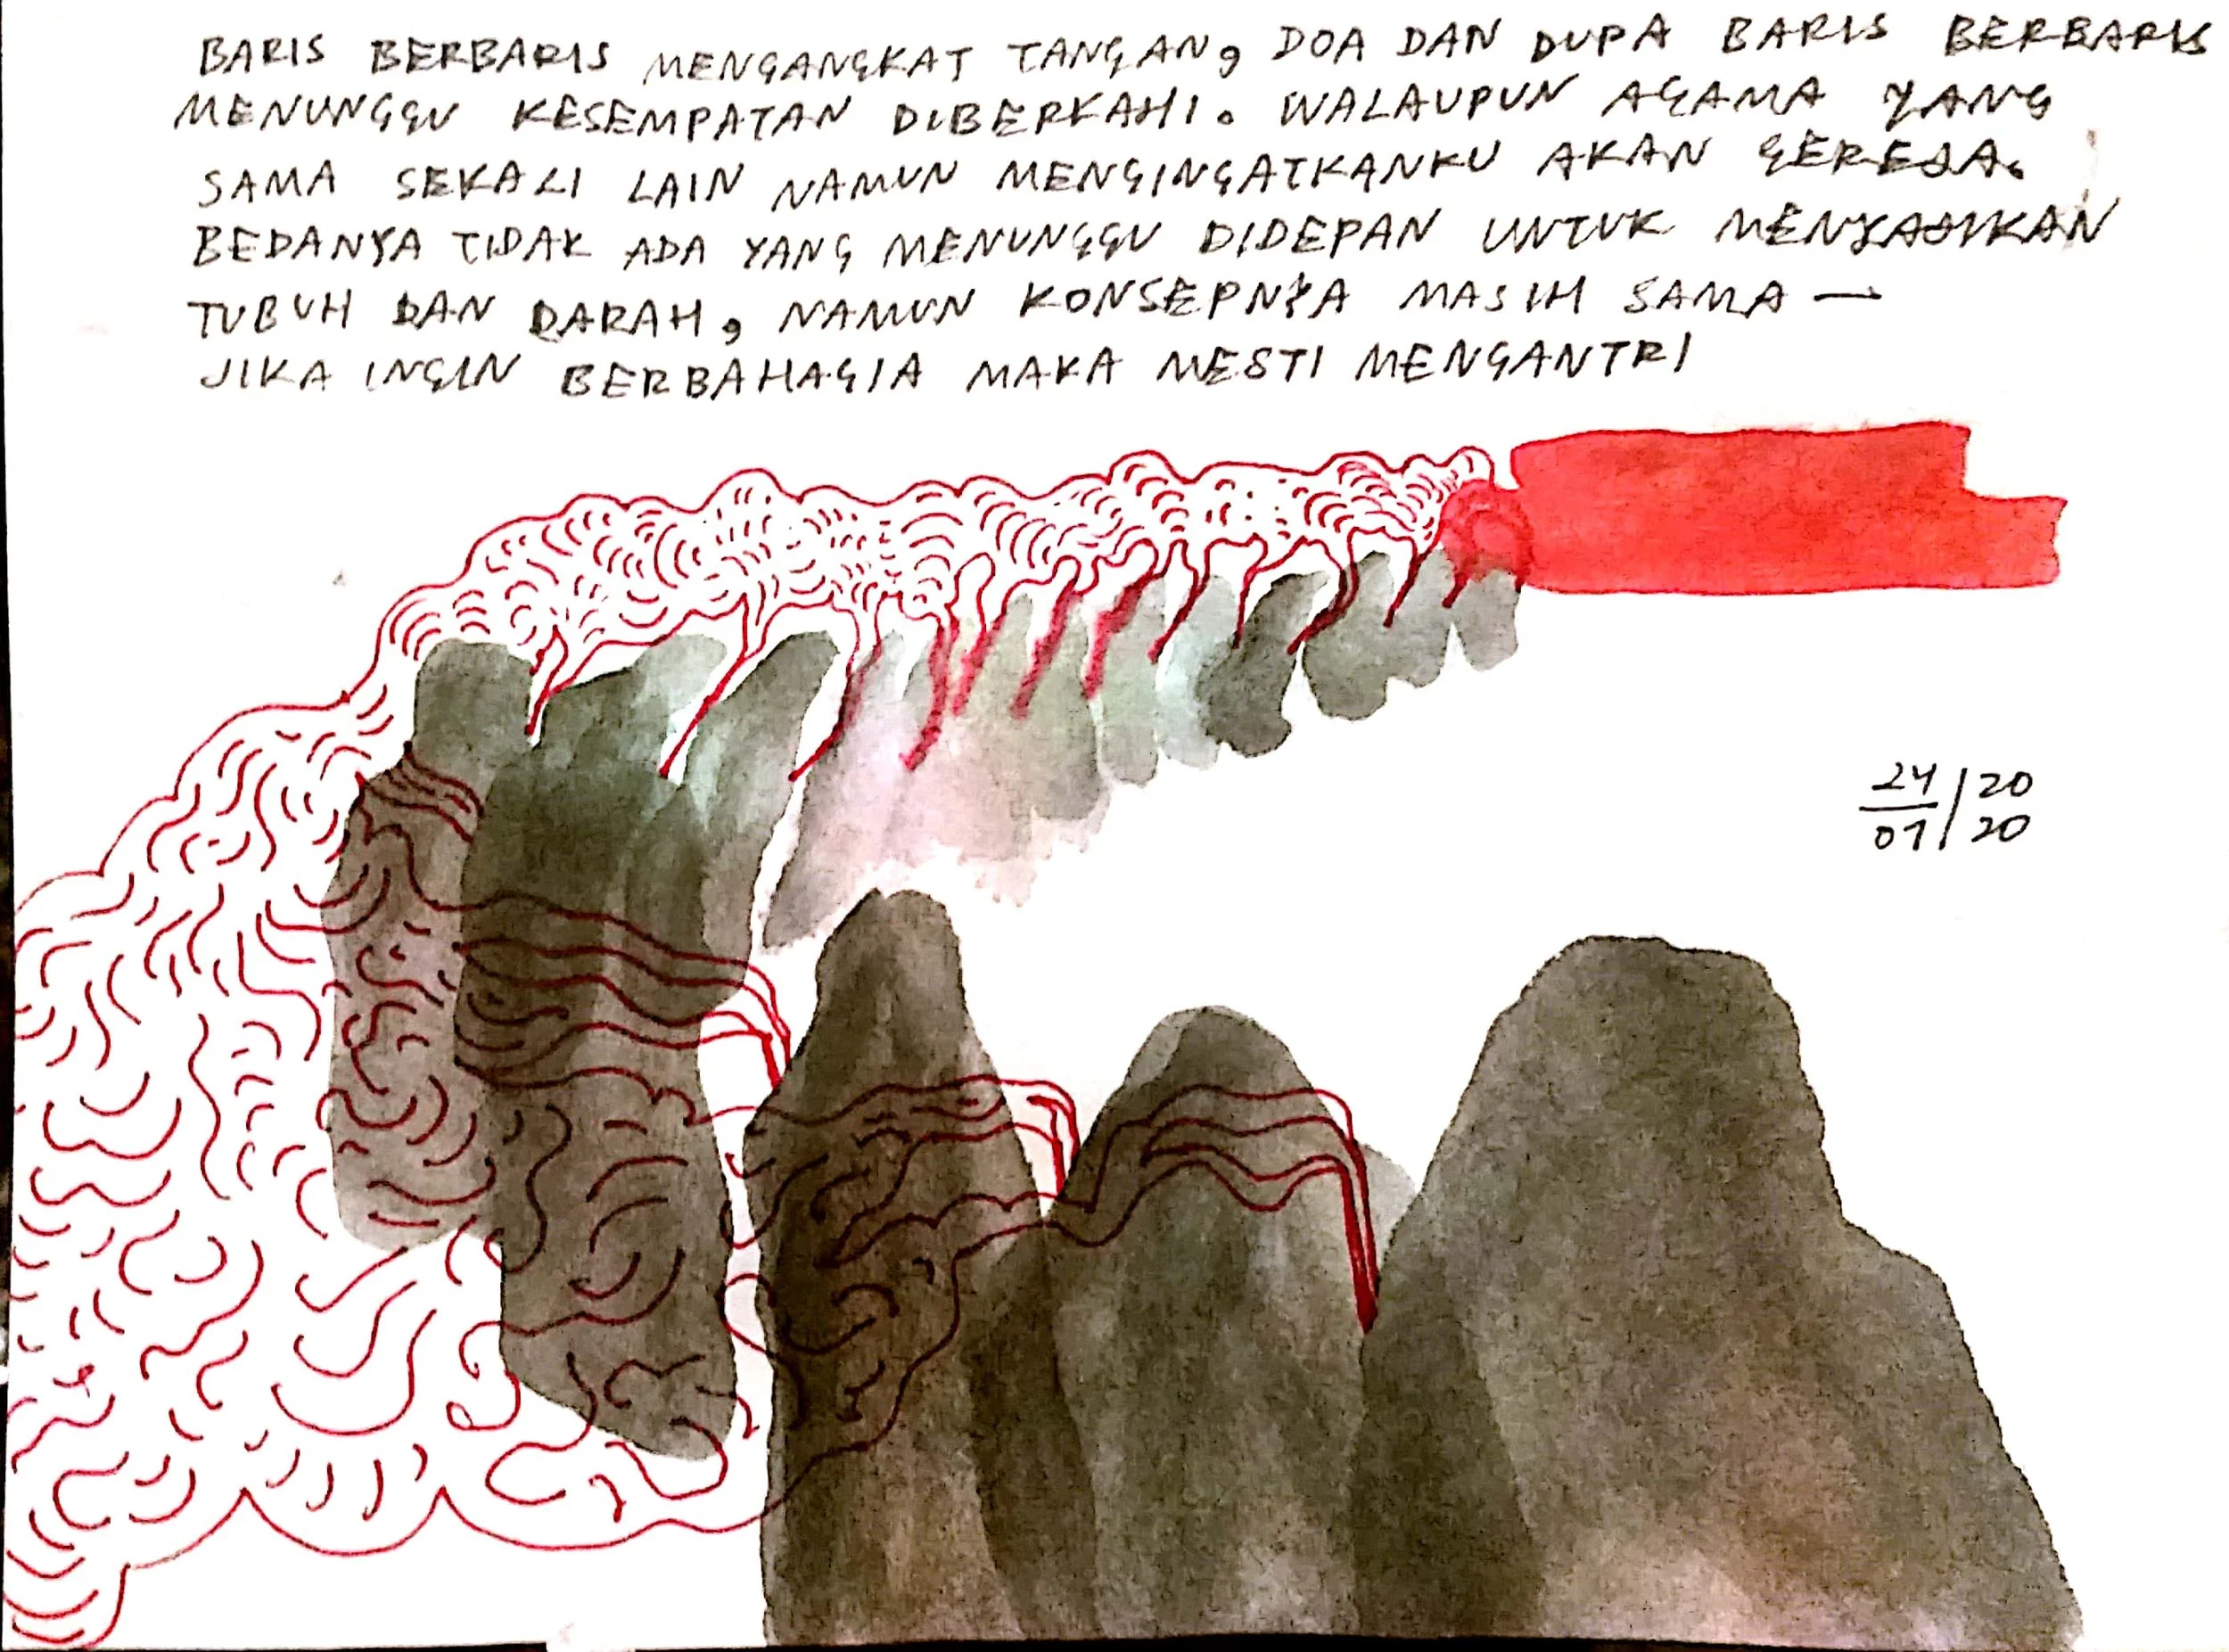 BARIS BERBARIS MENGANGKAT TANGAN, DOA DAN DUPA BARIS BERBARIS
MENUNGGU KESEMPATAN DIBERKAHI. WALAUPUN AGAMA YANG
SAMA SEKALI LAIN NAMUN MENGINGATKANKU AKAN GEREJA.
BEDANYA TIDAK ADA YANG MENUNGGU DIDEPAN UNTUK MENYAJIKAN
TUBUH DAN DARAH, NAMUN KONSEPNYA MASIH SAMA —
JIKA INGIN BERBAHAGIA MAKA MESTI MENGANTRI
24/20
01/20